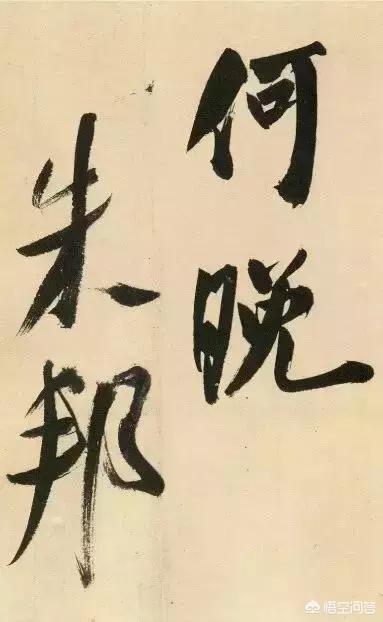 何晚
朱邦
悟空问答